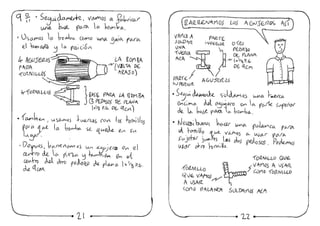 9º. • Seguidamente, vamos a fabricar
una base para la bomba.
• Usamos la bomba como una guía para
el tamaño y la posición.
4 AGUJEROS
PARA
TORNILLOS
LA BOMBA
(VISTA DE
ABAJO)
4 TORNILLOS
BASE PARA LA BOMBA
(2 PEDAZOS DE PLANA
DE 9cm)
• También, usamos tuercas con los tornillos
para que la bomba se quede en su
lugar.
• Después, barrenamos un agujero en el
centro de la pieza y también en el
centro del otro pedazo de plana
de 9cm
21
¡BARRENAMOS LOS AGUJEROS ASÍ!
VAMOS A
SOLDAR
UNA
TUERCA
ACÁ
PARTE
SUPERIOR
OTRO
PEDAZO
DE PLANA
DE 9cm
PARTE
INFERIOR
AGUJEROS
• Seguidamente soldamos una tuerca
encima del agujero en la parte superior
de la base para la bomba.
• Necesitamos hacer una palanca para
el tornillo que vamos a usar para
sujetar juntos los dos pedazos. Podemos
usar otro tornillo.
TORNILLO
QUE VAMOS
A USAR
COMO PALANCA
TORNILLO QUE
VAMOS A USAR
COMO TORNILLO
SOLDAMOS ACÁ
22